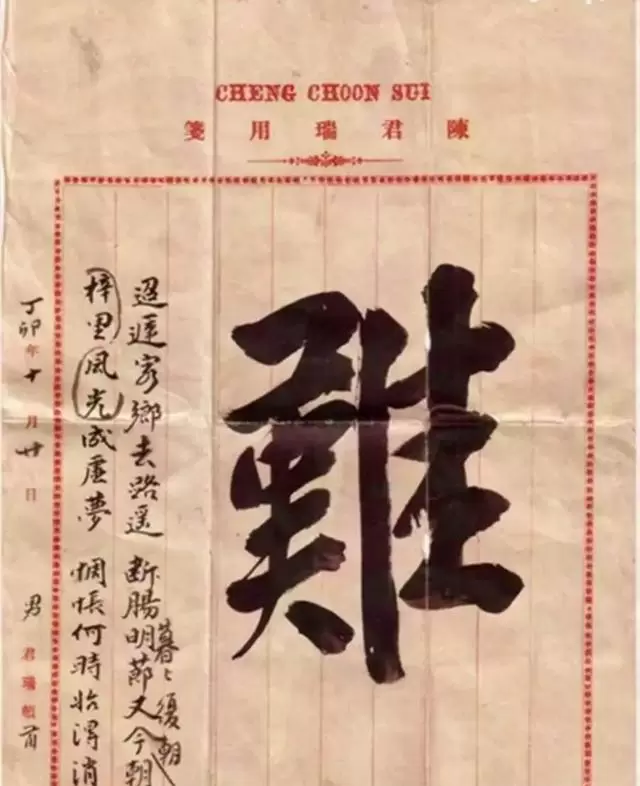 CHENG CHOON SUI
陳君瑞用箋
難
迢遞家鄉去路遥 断腸明節又今朝
暮〻復朝
梓里風光成虚夢 惆悵何時始得消
丁卯年十月廿日 男 君瑞